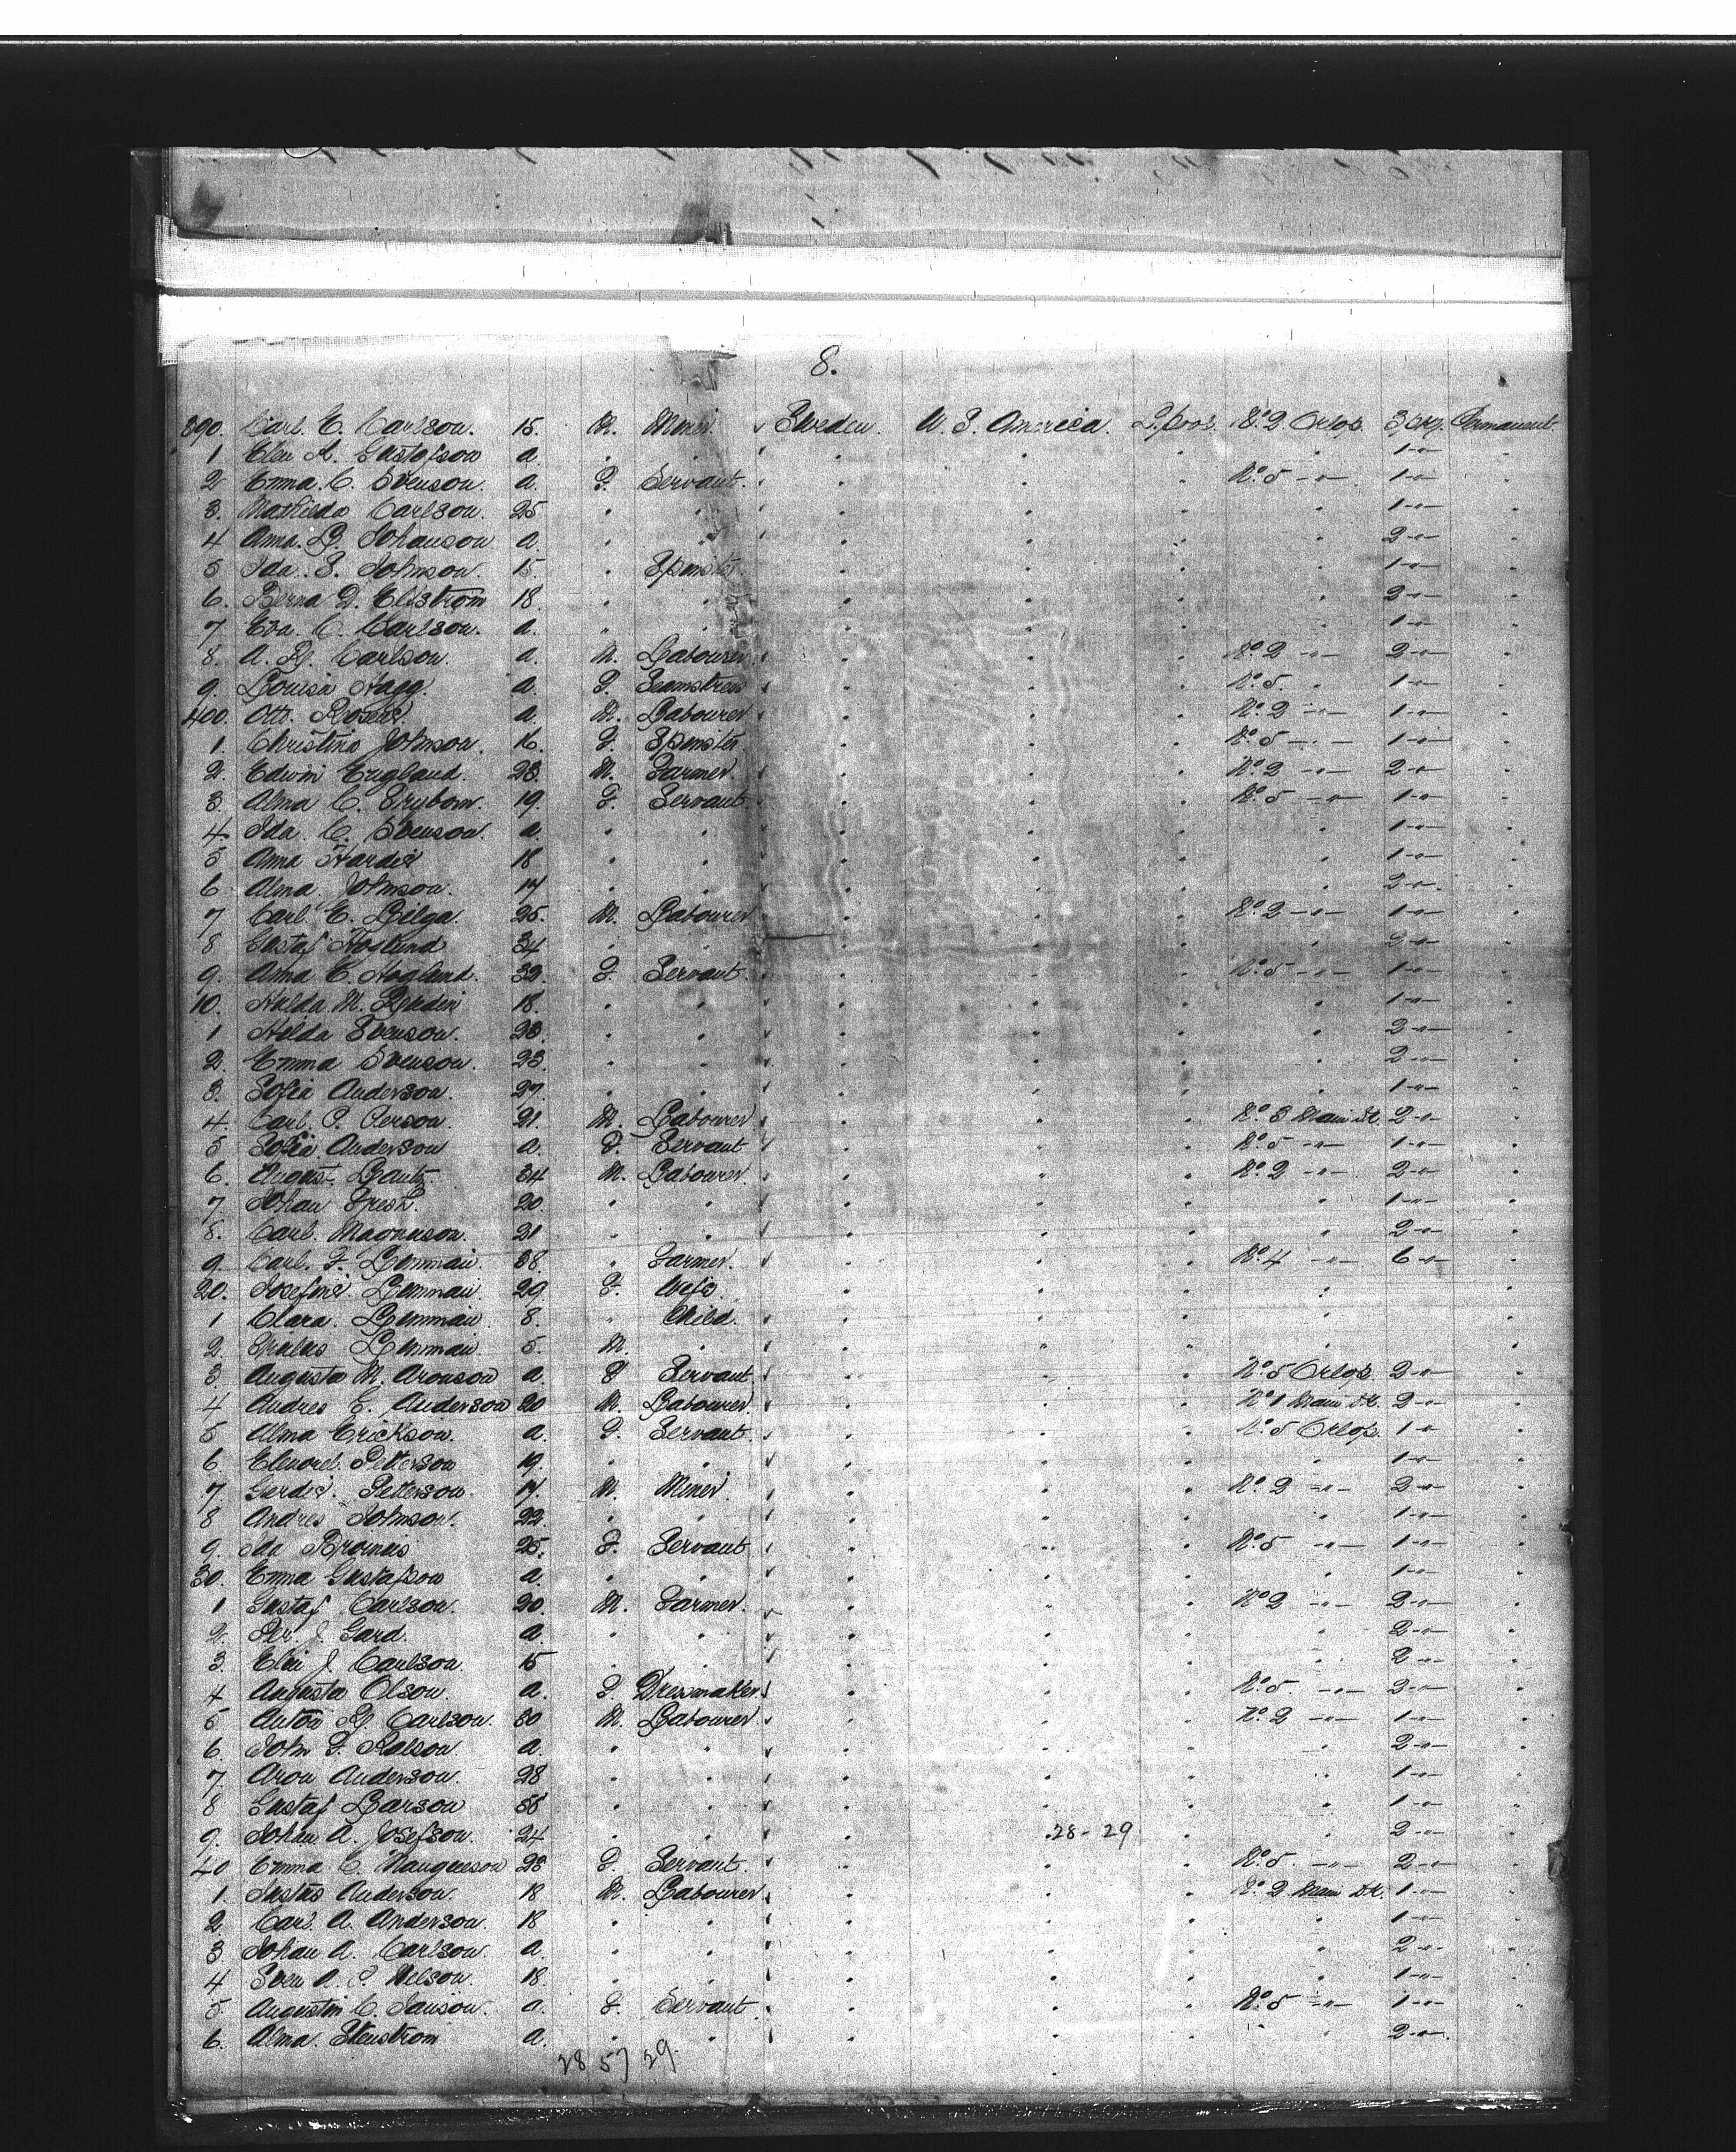 8.
390. Carl. E. Carlson. 15. M. Miner. Sweden. U. S. America. L.pool. No. 2 Orlop. 3 pkg. Permanent.
1 A. Gustafson a. " " " " " " 1 -"- "
2 Emma. C. Svenson. a. F. Servant. " " " No. 5 -"- 1 -"- "
3. Mathilda Carlson. 25 " " " " " " 1 -"- "
4 Anna. B. Johanson a. " " " " " " 2 -"- "
5 Ida. S. Johnson. 15. " Spinster. " " " " 1 -"- "
6. Berna D. 18. " " " " " " 2 -"- "
7 Eva. C. Carlson. a. " " " " " " 1 -"- "
8. A. Carlson. a. M. Labourer " " " No. 2 -"- 2 -"- "
9. Louisa Hagg. a. F. Seamstress " " " No. 5. " 1 -"- "
400. Otto. a. M. Labourer " " " No. 2 -"- 1 -"- "
1. Christina Johnson. 16. F. Spinster. " " " No. 5 -"- 1 -"- "
2. Edwin England. 23. M. Farmer. " " " No. 2 -"- 2 -"- "
3. Alma C. 19. F. Servant " " " No. 5 -"- 1 -"- "
4 Ida. C. Svenson. a. " " " " " " 1 -"- "
5 Anna 18 " " " " " " 1 -"- "
6. Alma. Johnson. 17 " " " " " " 2 -"- "
7 Carl. E. Lilga. 25. M. Labourer " " " No. 2 -"- 1 -"- "
8 Gustaf Hoglund 34 " " " " " " 2 -"- "
9. Anna E. Hoglund. 32. F. Servant. " " " No. 5 -"- 1 -"- "
10. Hulda. M. 18. " " " " " " 1 -"- "
1 Hilda Svenson. 23. " " " " " " 2 -"- "
2. Emma Svenson. 23. " " " " " " 2 -"- "
3. Sofia Anderson. 27. " " " " " " 1 -"- "
4. Carl. P. Person. 21. M. Labourer. " " " No. 3 Main Dk. 2 -"- "
5 Sofia. Anderson a. F. Servant " " " No. 5 -"- 1 -"- "
6. August. 34 M. Labourer. " " " No. 2 -"- 2 -"- "
7. Johan 20. " " " " " " 1 -"- "
8. Carl. Magnuson. 21 " " " " " " 2 -"- "
9. Carl. F. 38. " Farmer. " " " No. 4 -"- 6 -"- "
20. 29. F. Wife. " " " " " "
1 Clara. 8. " Child. " " " " " "
2. 5. M. " " " " " " "
3. Augusta M. Aronson a. F Servant. " " " No. 5 Orlop. 2 -"- "
4 Andres E. Anderson 20 M. Labourer. " " " No. 1 Main Dk. 2 -"- "
5 Alma Erickson. a. F. Servant. " " " No. 5 Orlop. 1 -"- "
6. Petterson 19. " " " " " " 1 -"- "
7 Petterson. 17. M. Miner. " " " No. 2 -"- 2 -"- "
8 Andres Johnson. 22. " " " " " " 1 -"- "
9. Ida 25. F. Servant " " " No. 5 -"- 1 -"- "
30. Emma Gustafson a. " " " " " " 1 -"- "
1 Gustaf Carlson. 20. M. Farmer. " " " No. 2 -"- 2 -"- "
2. Per. J. Gard. a. " " " " " " 2 -"- "
3. J. Carlson. 15 " " " " " " 2 -"- "
4 Augusta Olson. a. F. Dressmaker. " " " No. 5. -"- 2 -"- "
5 Anton Carlson. 30 M. Labourer. " " " No. 2 -"- 1 -"- "
6. John F. a. " " " " " " 2 -"- "
7. Aron Anderson. 28 " " " " " " 1 -"- "
8 Gustaf Larson " " " " " " 1 -"- "
9. Johan A. Josefson. 24 " " " 28-29 " " 2 -"- "
40 Emma C. 23 F. Servant. " " " No. 5. -"- 2 -"- "
1. Anderson. 18 M. Labourer. " " " No. 2 Main Dk. 1 -"- "
2 Carl A. Anderson. 18 " " " " " " 1 -"- "
3 Johan A. Carlson a. " " " " " " 2 -"- "
4 Sven A. P. Nelson. 18. " " " " " " 1 -"- "
5. Augustin C. a. F. Servant. " " " No. 5 -"- 1 -"- "
6. Alma. Stenstrom a. " " " " " " 2 -"- "
28 57 29.